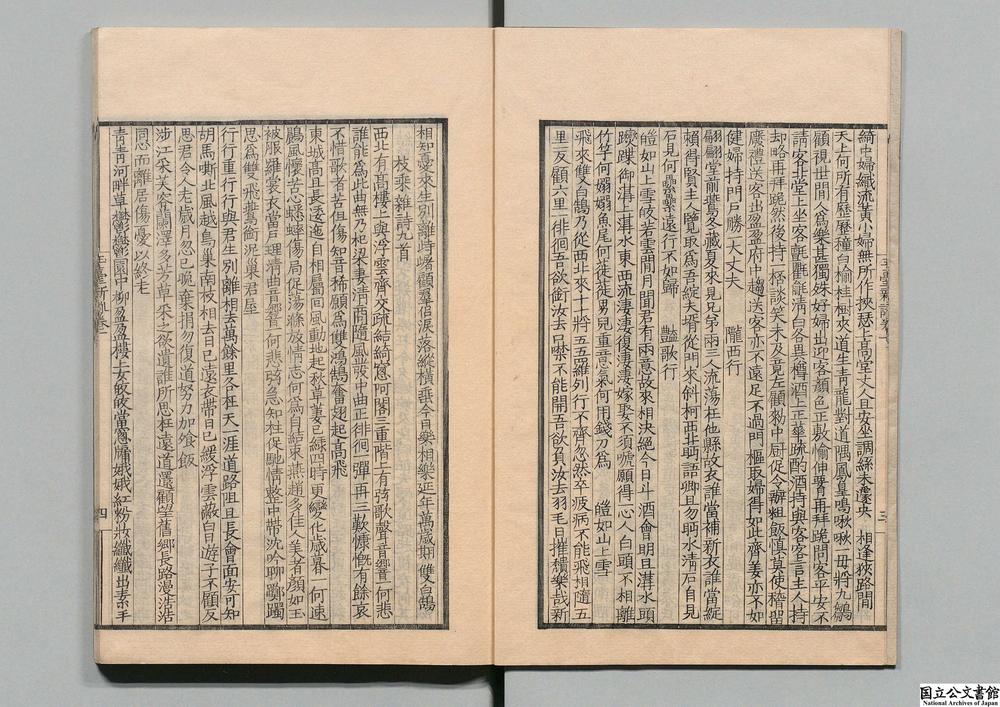 綺中婦織流黃小婦無所作挾瑟上高堂丈人且安坐調絲未遽央　相逢狹路間
天上何所有歷歷種白榆桂樹夾道生靑龍對道隅鳳皇鳴啾啾一毋將九鶵
顧視世間人爲樂甚獨姝好婦出迎客顏色正敷愉伸𦝫再拜跪問客平安不
請客北堂上坐客氈氍毹淸白各異樽酒上正華疏酌酒持與客客言主人持
却略再拜跪然後持一桮談笑未及竟左顧勑中厨促令辦粗飯愼莫使稽留
廢禮送客出盈盈府中趨送客亦不遠足不過門樞取婦得如此齊姜亦不如
健婦持門戶勝一大丈夫　隴西行
翩翩堂前鷰冬藏夏來見兄弟兩三人流蕩枉他縣故衣誰當補新衣誰當綻
賴得賢主人覽取爲吾綻夫壻從門來斜柯西北眄語卿且勿眄水淸石自見
石見何纍纍遠行不如歸　豔歌行
皚如山上雪皎若雲間月聞君有兩意故來相決絕今日斗酒會明旦溝水頭
躞蹀御溝上溝水東西流淒淒復淒淒嫁娶不須嗁願得心人白頭不相離
竹竿何嫋嫋魚尾何簁簁男兒重意氣何用錢刀爲　皚如山上雪
飛來雙白鵠乃從西北來十十將五五羅列行不齊忽然卒疲病不能飛相隨五
里一反顧六里一徘徊吾欲銜汝去口噤不能開吾欲負汝去羽毛日摧穨樂哉新
玉臺新詠卷一
三
相知憂來生別離峙𡺾顧羣侣淚落縱橫垂今日樂相樂延年萬歲期　雙白鵠
枚乘雜詩九首
西北有高樓上與浮雲齊交疏結綺窻阿閣三重階上有弦歌聲音響一何悲
誰能爲此曲無乃杞梁妻淸商隨風發中曲正徘徊一彈再三歎慷慨有餘哀
不惜歌者苦但傷知音稀願爲雙鴻鵠奮翅起高飛
東城高且長逶迤自相屬回風動地起秋草萋已綠四時更變化歲暮一何速
鷐風懷苦心蟋蟀傷局促蕩滌放情志何爲自結束燕趙多佳人美者顏如玉
被服羅裳衣當戶理淸曲音響一何悲弦急知柱促馳情整中帶沈吟聊躑躅
思爲雙飛鷰銜泥巢君屋
行行重行行與君生別離相去萬餘里各枉天一涯道路阻且長會面安可知
胡馬嘶北風越鳥巢南枝相去日已遠衣帶日已緩浮雲蔽白日遊子不顧反
思君令人老歲月忽已晩棄捐勿復道努力加飡飯
涉江采芙容蘭澤多芳草采之欲遺誰所思枉遠道還顧望舊鄉長路漫浩浩
同心而離居傷憂以終老
靑靑河畔草鬱鬱園中柳盈盈樓上女皎皎當窻牖娥娥紅粉妝纖纖出素手
玉臺新詠卷一
四
国立公文書館
National Archives of Japan